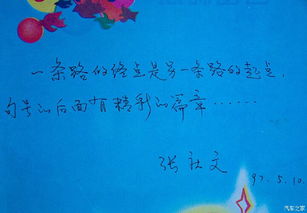 一条路的终点是另一条路的起点，
句号的后面有精彩的篇章……
张
文
97.5.10.
汽车之家